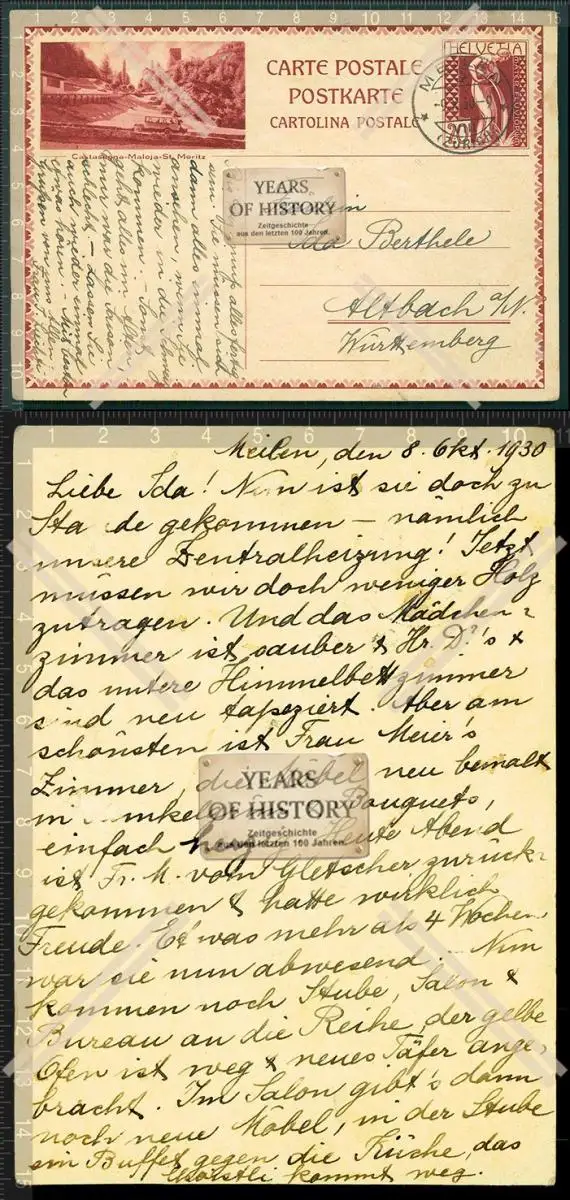 CARTE POSTALE
POSTKARTE
CARTOLINA POSTALE
HELVETIA
20
Castasegna-Maloja-St. Moritz
YEARS
OF HISTORY
Zeitgeschichte
aus den letzten 100 Jahren.
Ida Berthele
Altbach a/N.
Württemberg
alles fertig
Sie müssen sich
dann alles einmal
ansehen, wenn Sie
wieder in die Schweiz
kommen. – Sonst
geht alles im alten,
nur war die
schlecht. – Lassen Sie
auch wieder einmal
etwas hören. – Mit besten
Grüssen von uns allen
Meilen, den 8. Okt. 1930
Liebe Ida! Nun ist sie doch zu
Sta de gekommen – nämlich
unsere Zentralheizung! Jetzt
müssen wir doch weniger Holz
zutragen. Und das Mädchen=
zimmer ist sauber & Hr. D.'s &
das untere Himmelbettzimmer
sind neu tapeziert. Aber am
schönsten ist Frau Meier's
Zimmer, die Möbel neu bemalt
in Bouquets,
einfach Heute Abend
YEARS
OF HISTORY
Zeitgeschichte
aus den letzten 100 Jahren.
ist Fr. M. vom Gletscher zurück=
gekommen & hatte wirklich
Freude. Etwas mehr als 4 Wochen
war sie nun abwesend. Nun
kommen noch Stube, Salon &
Bureau an die Reihe, der gelbe
Ofen ist weg & neues Täfer ange=
bracht. Im Salon gibt's dann
noch neue Möbel, in der Stube
ein Buffet gegen die Küche, das
kommt weg.